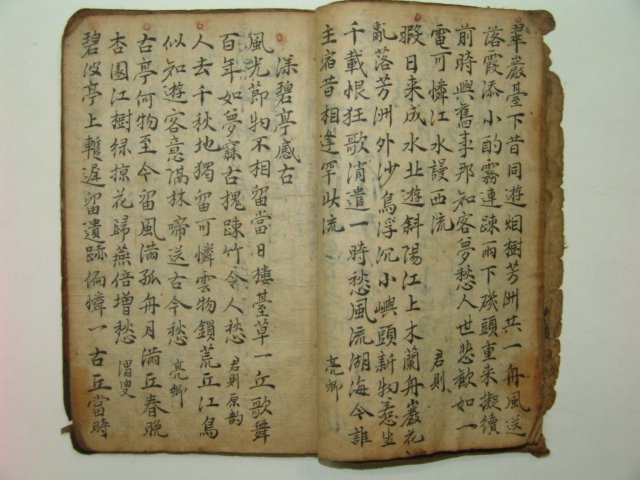 華巖臺下昔同遊烟樹芳洲共一舟風送
落霞添小酌霧連踈雨下磯頭重来擬續
前時興舊事那知客夢愁人世悲歡如一
電可憐江水謾西流 君則
暇日来成水北遊斜陽江上木蘭舟巖花
亂落芳洲外沙鳥浮沉小嶼頭新物惹生
千載恨狂歌消遣一時愁風流湖海今誰
主宿昔相逢罕此流 亮卿
漾碧亭感古
風光節物不相留當日樓臺草一丘歌舞
百年如夢寐古槐踈竹令人愁 君則原韵
人去千秋地獨留可憐雲物鎖荒丘江鳥
似知遊客意隔林啼送古今愁 亮卿
古亭何物至今留風滿孤舟月滿丘春晩
杏園江樹緑掠花歸燕倍增愁 渭叟
碧波亭上暫遲留遺跡偏憐一古丘當時